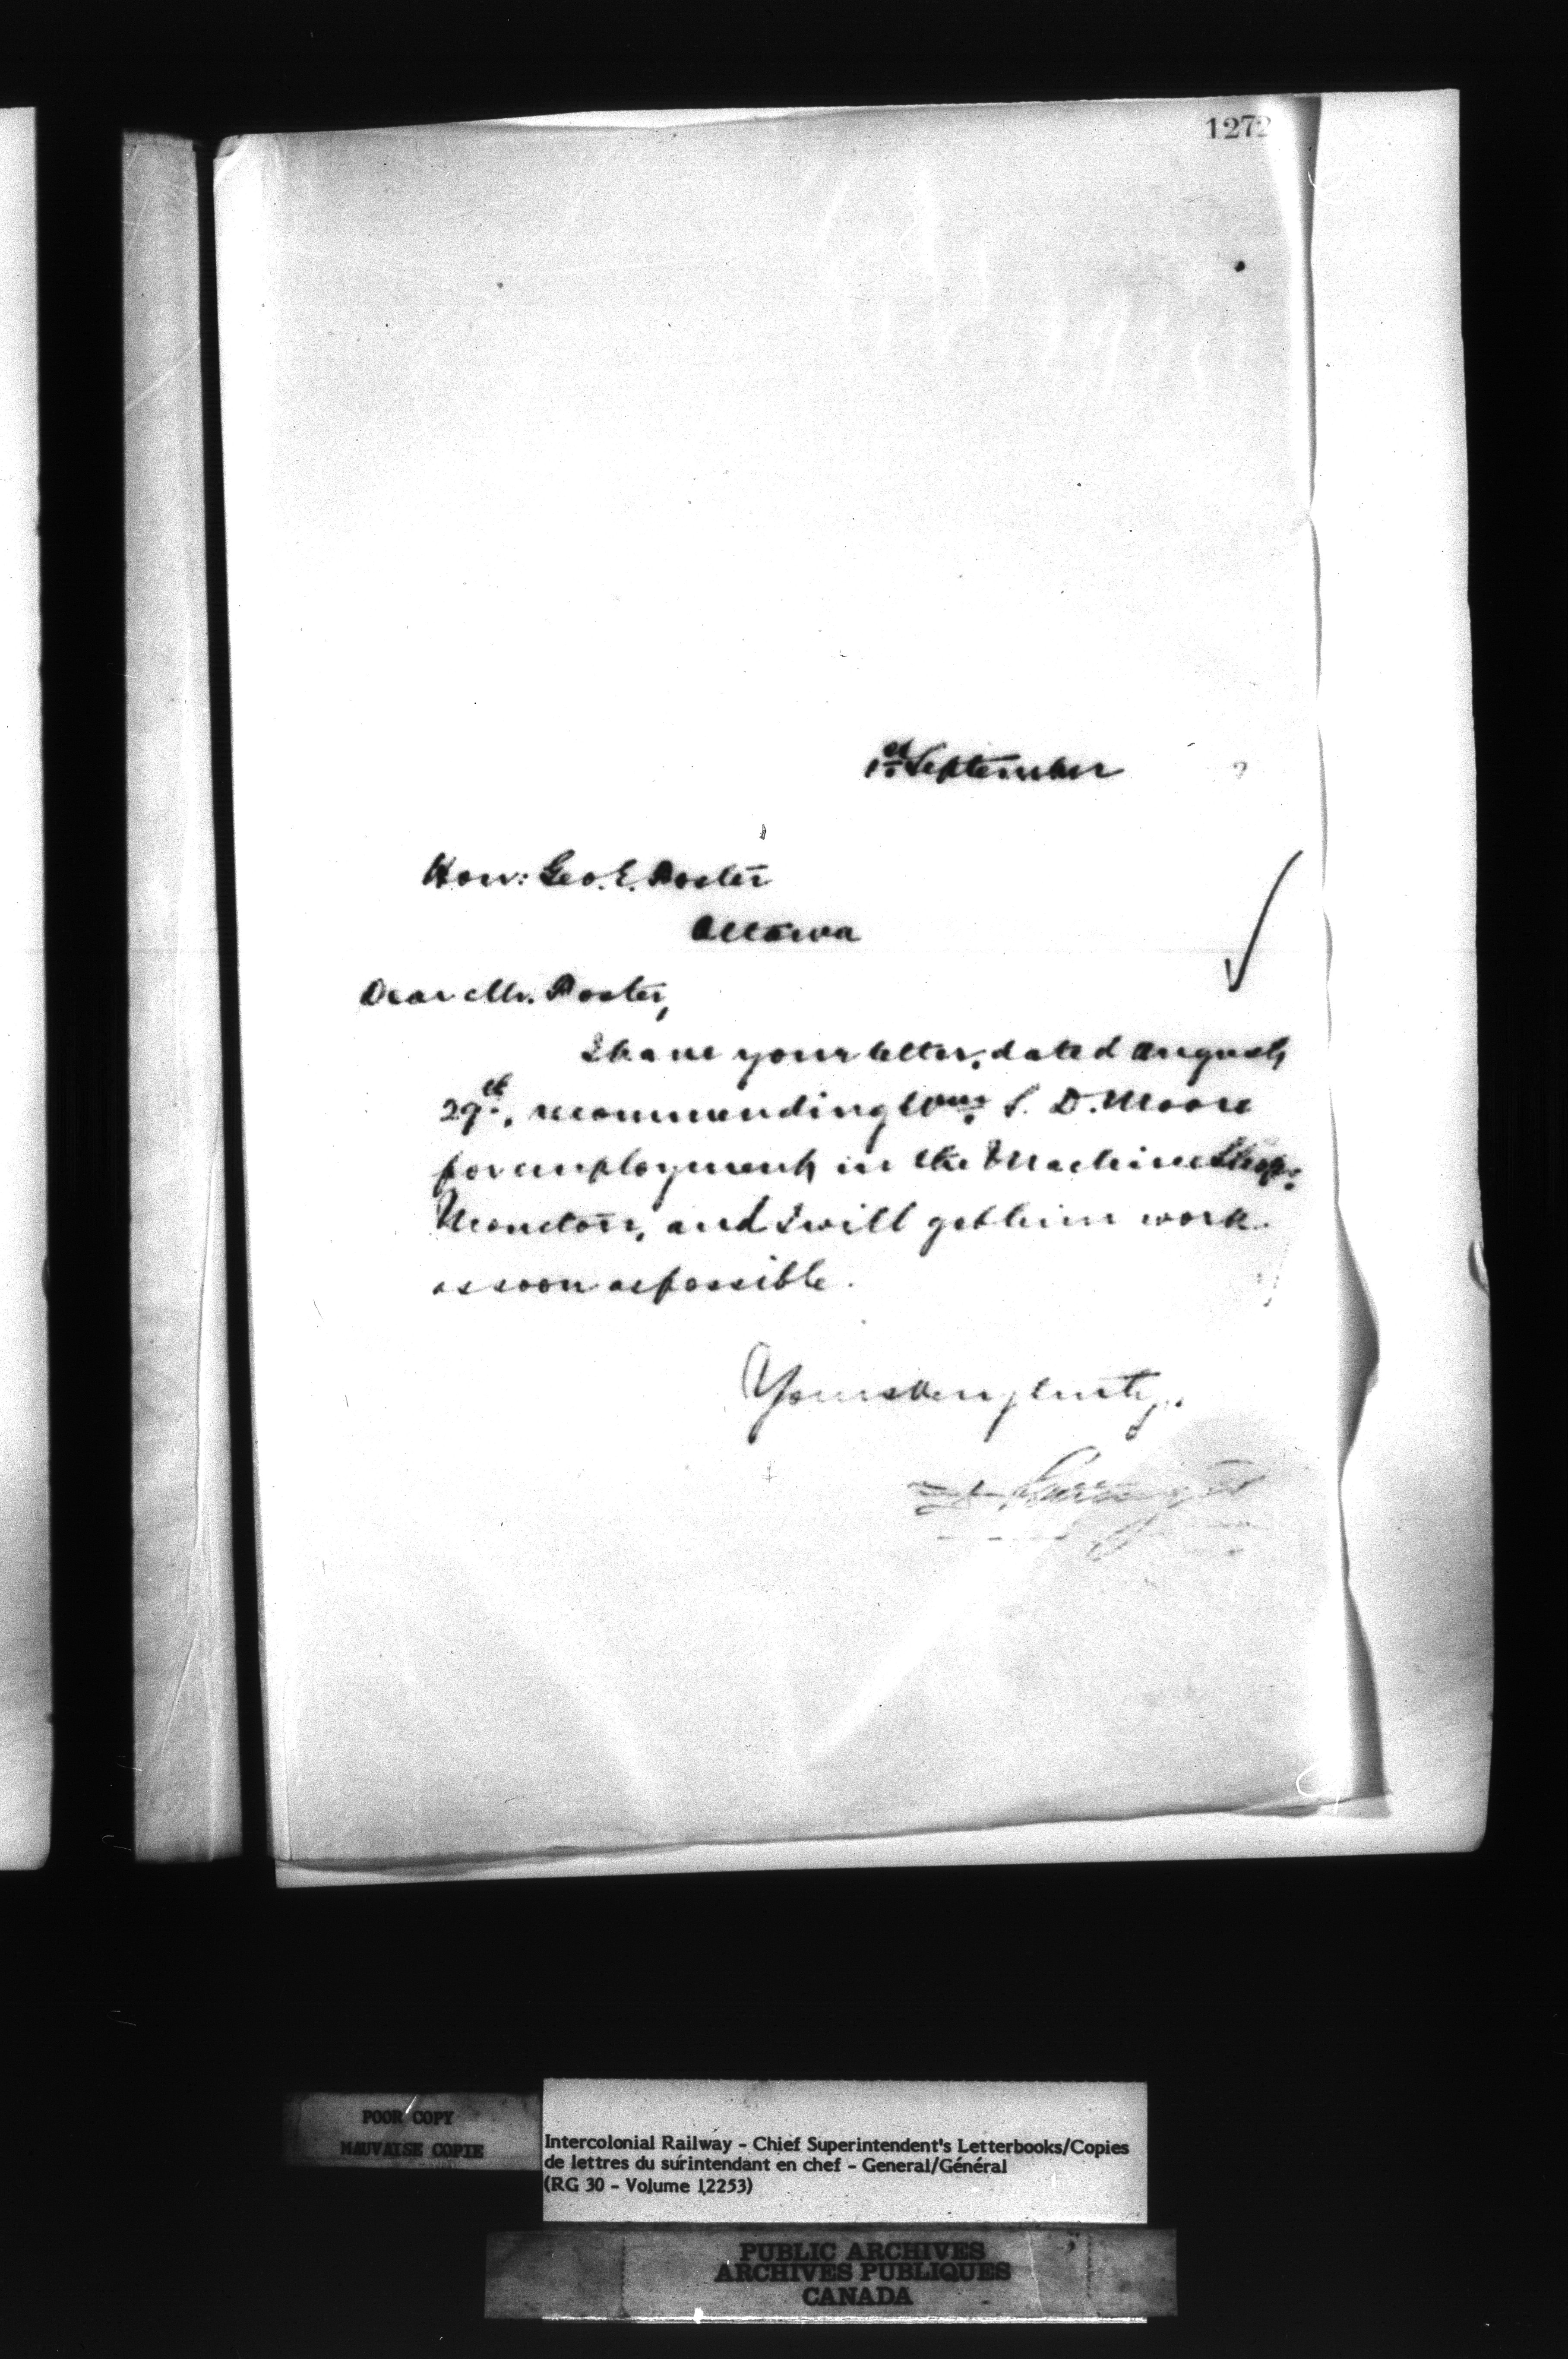 1272
1st September
Hon: Geo. E. Foster
Ottawa
Dear Mr. Foster,
I have your letter, dated August
29th, recommending Wm. S. D. Moore
for employment in the Machine Shop,
Moncton, and I will get him work
as soon as possible.
Yours very truly,
POOR COPY
MAUVAISE COPIE
Intercolonial Railway - Chief Superintendent's Letterbooks/Copies
de lettres du surintendant en chef - General/Général
(RG 30 - Volume 12253)
PUBLIC ARCHIVES
ARCHIVES PUBLIQUES
CANADA